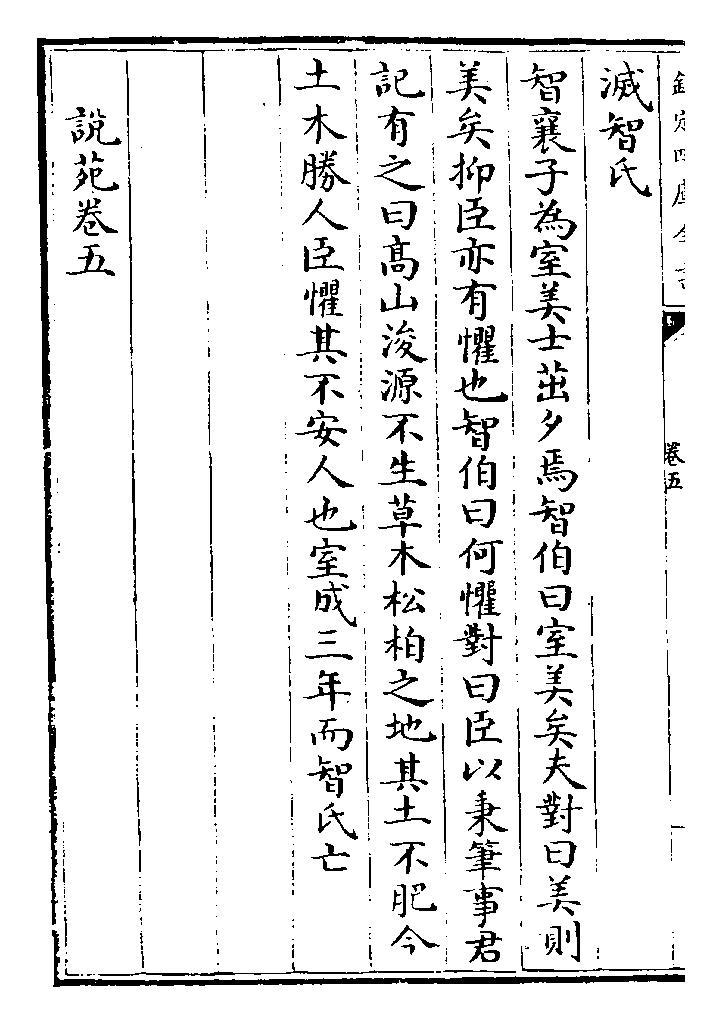 欽定四庫全書
卷五
滅智氏
智襄子為室美士茁夕焉智伯曰室美矣夫對曰美則
美矣抑臣亦有懼也智伯曰何懼對曰臣以秉筆事君
記有之曰髙山浚源不生草木松柏之地其土不肥今
土木勝人臣懼其不安人也室成三年而智氏亡
說苑卷五